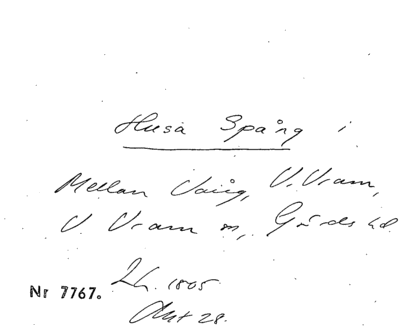 Husa Spång i
Mellan Vång, V. Vram,
V. Vram sn, Gärds hd.
Lh. 1805
Nr 7767.
Akt 28.